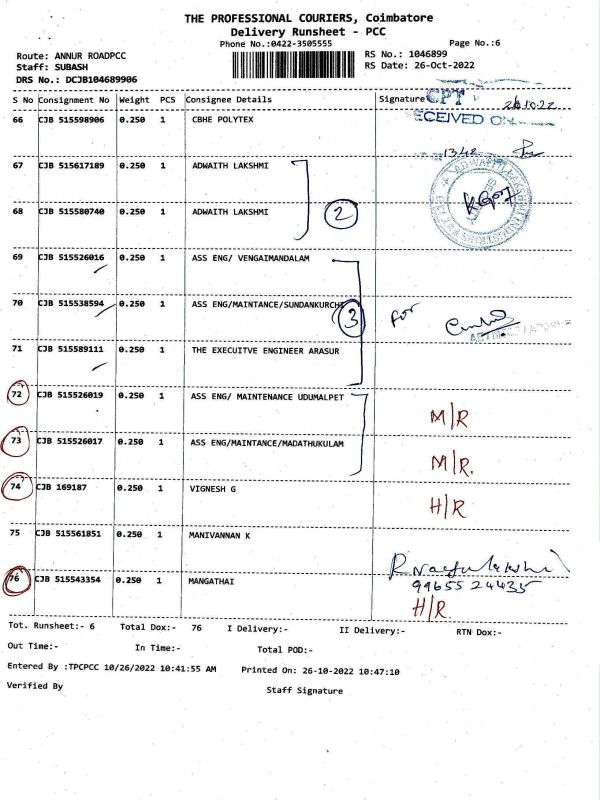 THE PROFESSIONAL COURIERS, Coimbatore
Delivery Runsheet - PCC
Phone No.:0422-3505555 Page No.:6
Route: ANNUR ROADPCC RS No.: 1046899
Staff: SUBASH RS Date: 26-Oct-2022
DRS No.: DCJB104689906
S No Consignment No Weight PCS Consignee Details Signature CPT
66 CJB 515598906 0.250 1 CBHE POLYTEX ECEIVED ON
1342
67 CJB 515617189 0.250 1 ADWAITH LAKSHMI
2
68 CJB 515580740 0.250 1 ADWAITH LAKSHMI
69 CJB 515526016 0.250 1 ASS ENG/ VENGAIMANDALAM
70 CJB 515538594 0.250 1 ASS ENG/MAINTANCE/SUNDANKURCHI
3 for
71 CJB 515589111 0.250 1 THE EXECUITVE ENGINEER ARASUR
72 CJB 515526019 0.250 1 ASS ENG/ MAINTENANCE UDUMALPET
M/R
73 CJB 515526017 0.250 1 ASS ENG/MAINTANCE/MADATHUKULAM
M/R.
74 CJB 169187 0.250 1 VIGNESH G
H/R
75 CJB 515561851 0.250 1 MANIVANNAN K
76 CJB 515543354 0.250 1 MANGATHAI
99655 24435
H/R.
Tot. Runsheet:- 6 Total Dox:- 76 I Delivery:- II Delivery:- RTN Dox:-
Out Time:- In Time:- Total POD:-
Entered By :TPCPCC 10/26/2022 10:41:55 AM Printed On: 26-10-2022 10:47:10
Verified By Staff Signature